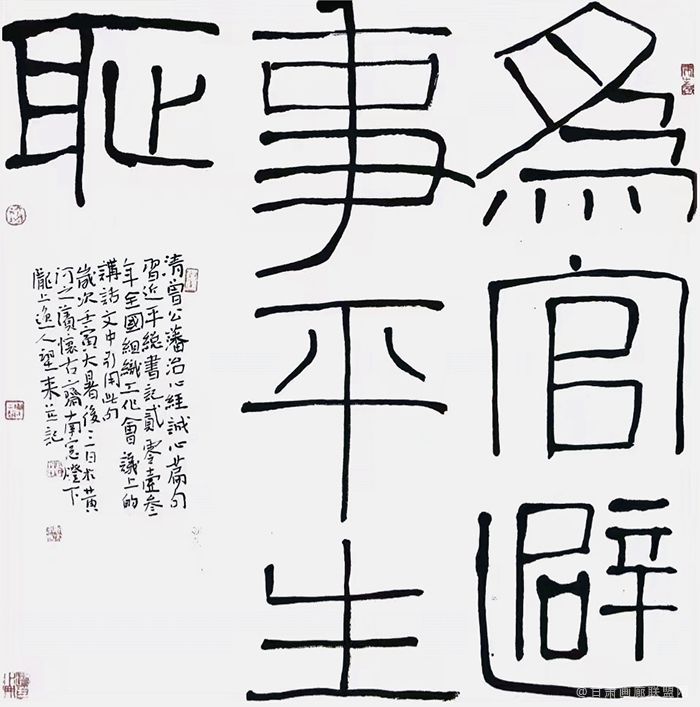 為官避
事平生
耻
清曾公藩治心經誠心篇句
習近平總書記貳零壹叁
年全國組織工作會議上的
講話文中引用此句
歲次壬寅大暑後三日於黄
河之濱懷古齋南窓燈下
隴上逸人望来並記
@甘肃画廊联盟